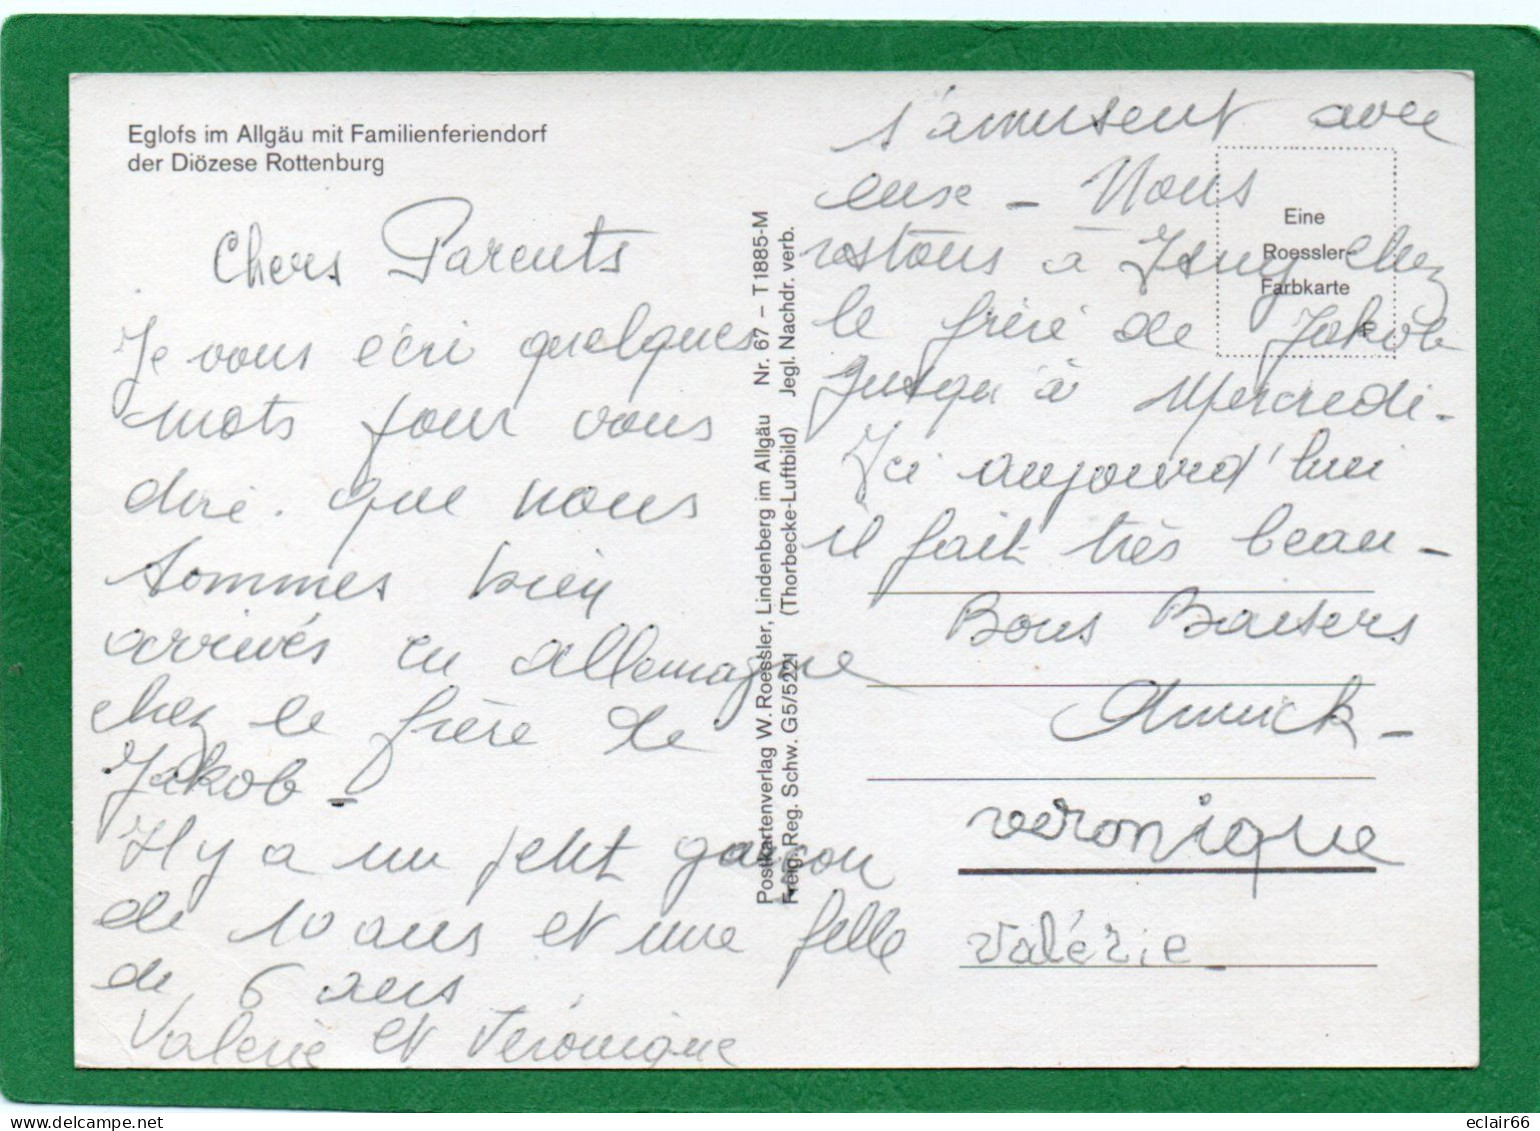 Eglofs im Allgäu mit Familienferiendorf
der Diözese Rottenburg
Chers Parents
Je vous écri quelques
mots pour vous
dire. que nous
sommes bien
arrivés en allemagne
chez le frère de
Jakob -
Il y a un petit garçon
de 10 ans et une fille
de 6 ans
Valérie et Véronique
s'amusent avec
eux - Nous
restons à Isny chez
le frère de Jakob
jusqu'à Mercredi -
Ici aujourd'hui
il fait très beau -
Bons Baisers
Annick -
veronique
Valérie
Postkartenverlag W. Roessler, Lindenberg im Allgäu Nr. 67 – T1885-M
Freig. Reg. Schw. G5/5221 (Thorbecke-Luftbild) Jegl. Nachdr. verb.
Eine
Roessler-
Farbkarte
F
delcampe.net
eclair66